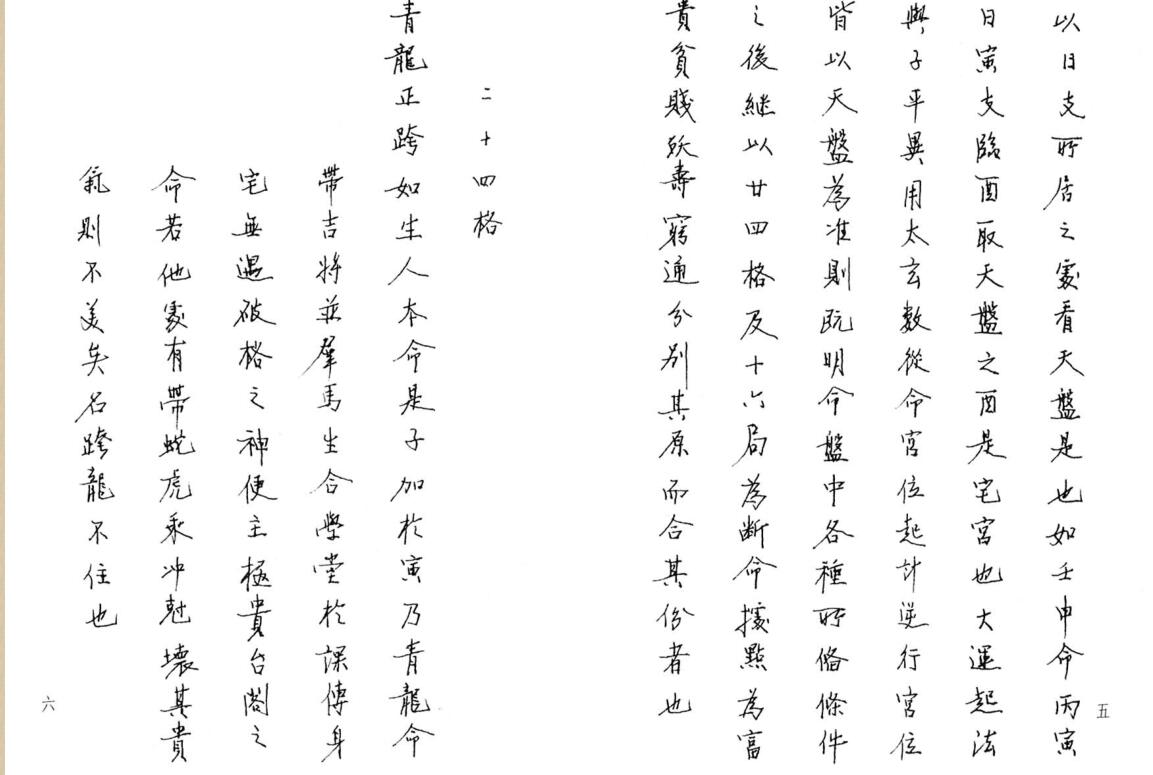 以日支所居之處看天盤是也如壬申命丙寅
日寅支臨酉取天盤之酉是宅宮也大運起法
與子平異用太玄數從命宮位起計逆行宮位
皆以天盤為准則既明命盤中各種所俻條件
之後継以廿四格及十六局為斷命據點為富
貴貧賤殀壽窮通分別其原而合其份者也
五
二十四格
青龍正跨如生人本命是子加於寅乃青龍命
帶吉將並羣馬生合學堂於課傳身
宅無遇破格之神便主極貴台閣之
命若他處有帶蛇虎乘冲尅壞其貴
氣則不美矣名跨龍不住也
六